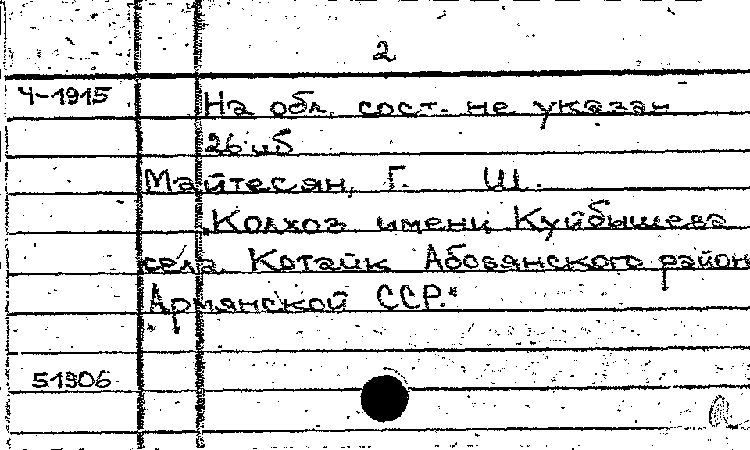 2
Ч-1915
На обл. сост. не указан
26 иб
Майтесян, Г. Ш.
"Колхоз имени Куйбышева
села Котайк Абовянского район
Армянской ССР."
51906